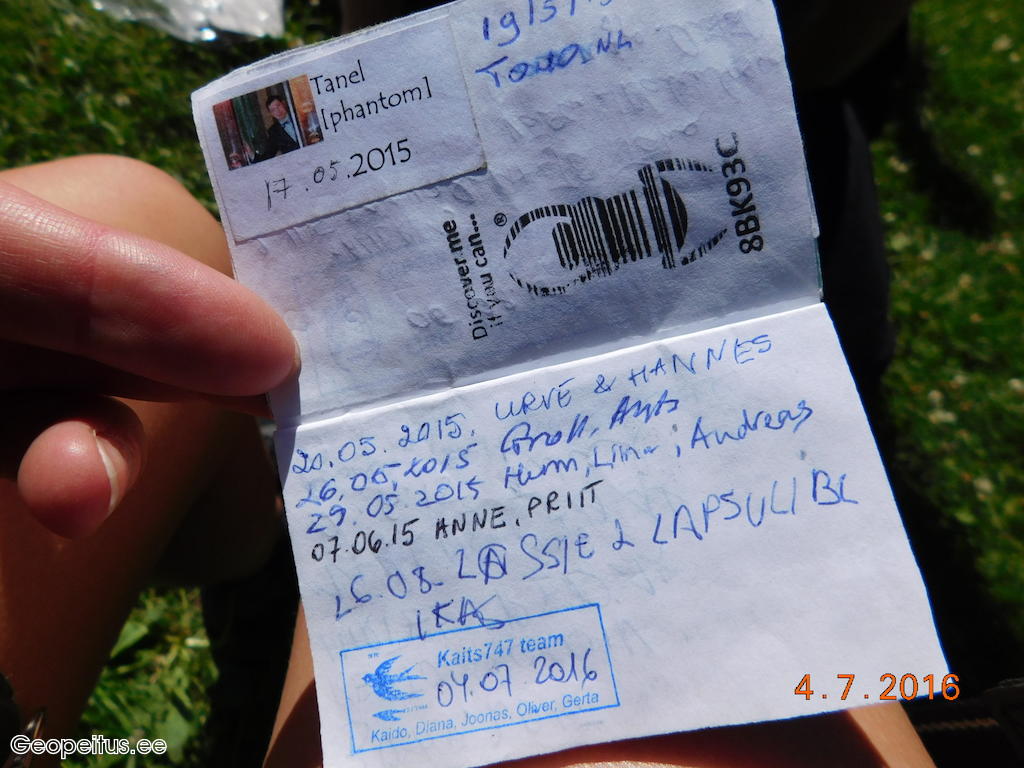 Tanel
[phantom]
17.05.2015
19/5/15
Discover me
if you can...®
8BK93C
20.05.2015. URVE & HANNES
26.05.2015
29.05.2015 Andreas
07.06.15 ANNE, PRIIT
26.08. LASSIE & LAPSULIBL
IKAS
Kaits747 team
04.07 2016
Kaido, Diana, Joonas, Oliver, Gerta
4.7.2016
Geopeitus.ee